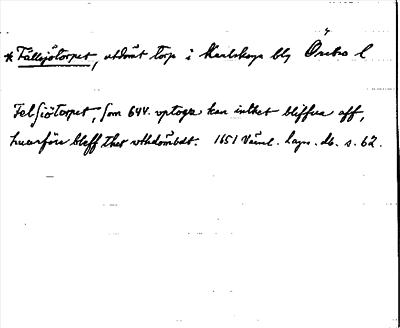 * Fälsjötorpet, utdömt torp i Karlskoga bsg Örebro l
Felsiötorpet, som 644. optogz kan inthet bliffua aff,
huarföre bleff thet vthdömbdt. 1651 Värml. Lagm. db. s. 62.